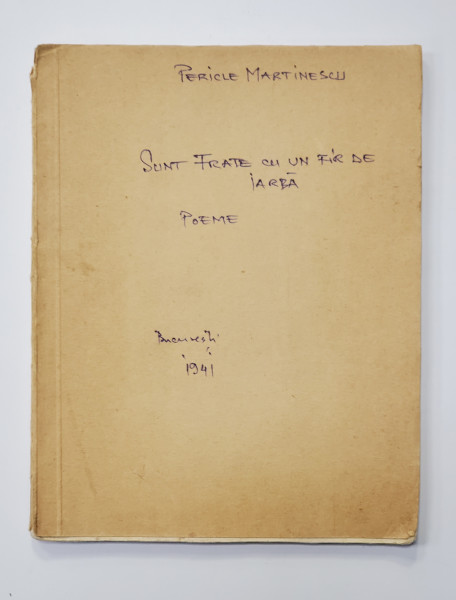 PERICLE MARTINESCU
SUNT FRATE CU UN FIR DE
IARBĂ
POEME
București
1941